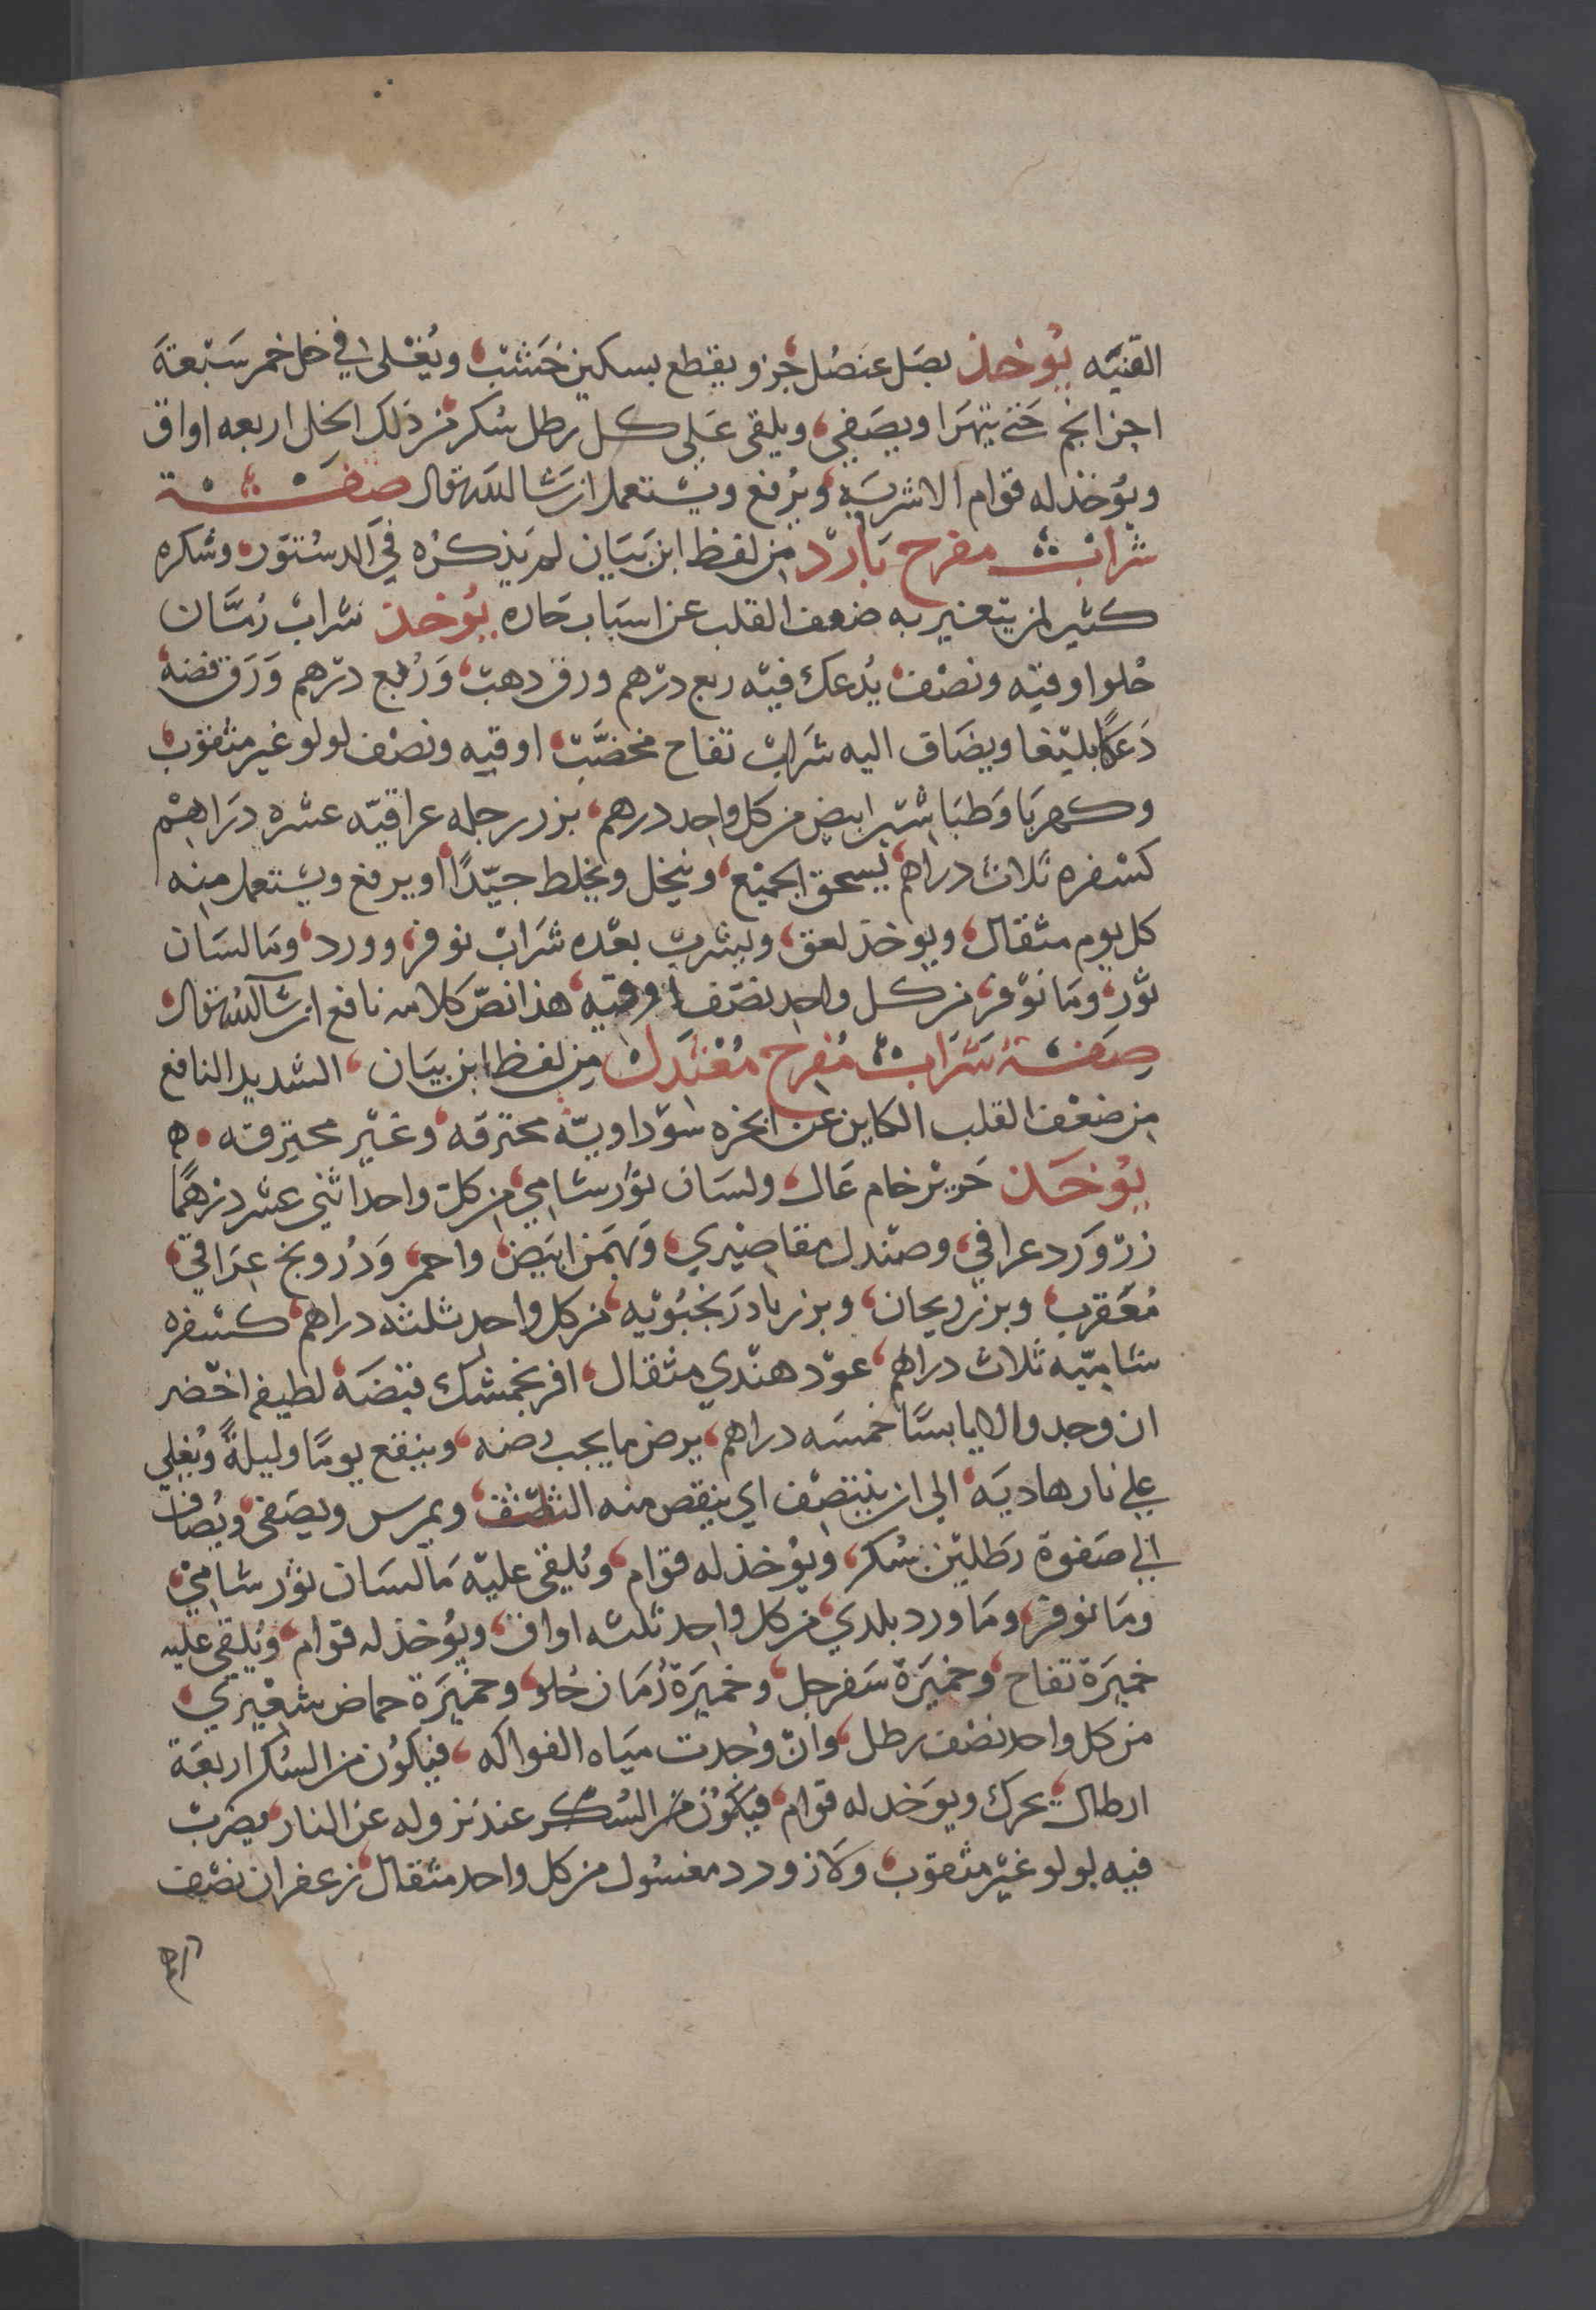 القنيه يوخذ بصل عنصل جزو يقطع بسكين خشب ويغلى في خل خمر سبعة
اجزا بحم حتى يتهرا ويصفى ويلقى على كل رطل سكر من ذلك الخل اربعه اواق
ويوخذ له قوام الاشربه ويرفع ويستعمل ان شا الله تعالى صفة
شراب مفرح بارد من لفظ ابن بيان لم يذكره في الدستور وشكره
كثير لمن يتغير به ضعف القلب عن اسباب حاره يوخذ شراب رمان
حلو اوقيه ونصف يدعك فيه ربع درهم ورق دهب وربع درهم ورق فضه
دعكا بليغا ويضاف اليه شراب تفاح مخضب اوقيه ونصف لولو غير مثقوب
وكهربا وطباشير ابيض من كل واحد درهم بزر رجله عراقيه عشره دراهم
كسفره ثلاث دراهم يسحق الجميع وينخل ويخلط جيدا ويرفع ويستعمل منه
كل يوم مثقال ويوخذ لعق ويشرب بعده شراب نوفر وورد وما لسان
ثور وما نوفر من كل واحد نصف اوقيه هذا نص كلامه نافع ان شا الله تعالى
صفة شراب مفرح معتدل من لفظ ابن بيان الشديد النافع
من ضعف القلب الكاين عن ابخره سوداويه محترقه وغير محترقه ه
يوخذ حرير خام عال ولسان ثور شامي من كل واحد اثني عشر درهما
زر ورد عراقي وصندل مقاصيري وبهمن ابيض واحمر ودرونج عراقي
معقرب وبزر ريحان وبزر بادرنجبويه من كل واحد ثلثه دراهم كسفره
شاميه ثلاث دراهم عود هندي مثقال افرنجمشك قبضه لطيفه اخضر
ان وجد والا يابسا خمسه دراهم يرض ما يجب رضه وينقع يوما وليلة ويغلى
على نار هاديه الى ان ينتصف اي ينقص منه النصف ويمرس ويصفى ويضاف
الى صفوة رطلين سكر ويوخذ له قوام ويلقى عليه ما لسان ثور شامي
وما نوفر وما ورد بلدي من كل واحد ثلثه اواق ويوخذ له قوام ويلقى عليه
خميرة تفاح وخميرة سفرجل وخميرة رمان حلو وخميرة حماض شعيري
من كل واحد نصف رطل وان وجدت مياه الفواكه فيكون من السكر اربعة
ارطال يحرك ويوخد له قوام فيكون من السكر عند نزوله عن النار يضرب
فيه لولو غير مثقوب ولازورد مغسول من كل واحد مثقال زعفران نصف
درهم